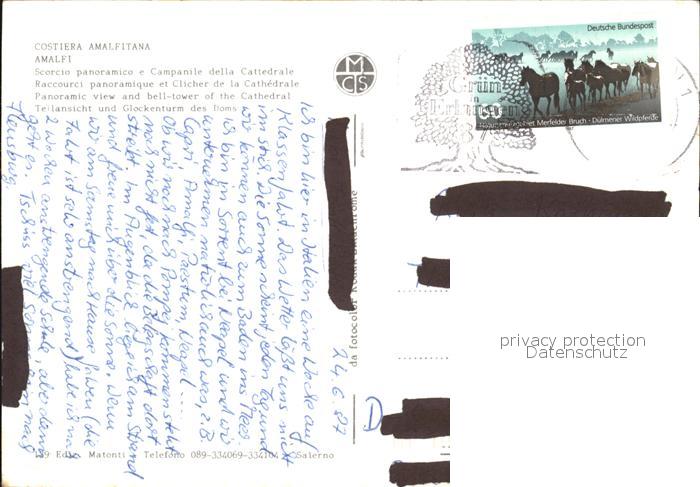 COSTIERA AMALFITANA
AMALFI
Scorcio panoramico e Campanile della Cattedrale
Raccourci panoramique et Clicher de la Cathédrale
Panoramic view and bell-tower of the Cathedral
Teilansicht und Glockenturm des Doms
MCS
Deutsche Bundespost
60
Naturschutzgebiet Merfelder Bruch - Dülmener Wildpferde
Grün
Erh
24.6.87
Ich bin hier in Italien eine Woche auf
Klassenfahrt. Das Wetter läßt uns nicht
im Stich. Die Sonne scheint jeden Tag und
wir können auch zum Baden ins Meer.
Ich bin in Sorrent bei Neapel und wir
unternehmen natürlich auch was, z.B.
Capri, Amalfi, Paestum, Neapel ...
Ob wir nach Pompeji kommen steht
noch nicht fest, da die Belegschaft dort
streikt. Im Augenblick liege ich am Strand
und freu mich über die Sonne. Wenn
wir am Samstag nach Hause fahren (die
Fahrt ist sehr anstrengend) habe ich nur
2 Wochen anstrengende Schule, aber dann
geht es
Tschüss viel
da fotocolor Kodak Ektachrome
D
Ediz. Matonti - Telefono 089-334069-334104 - Salerno
privacy protection
Datenschutz